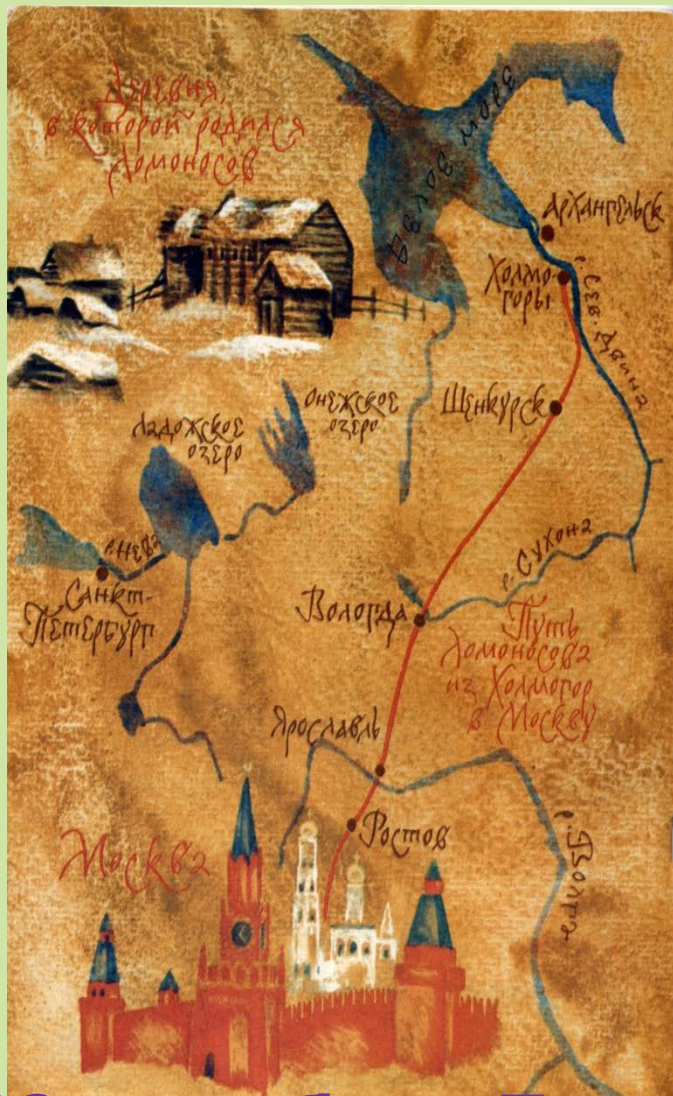 Деревня,
в которой родился
Ломоносов
Белое море
Архангельск
Холмо-
горы
р. Сев. Двина
Шенкурск
Онежское
озеро
Ладожское
озеро
р. Нева
Санкт-
Петербург
р. Сухона
Вологда
Путь
Ломоносова
из Холмогор
в Москву
Ярославль
Ростов
р. Волга
Москва